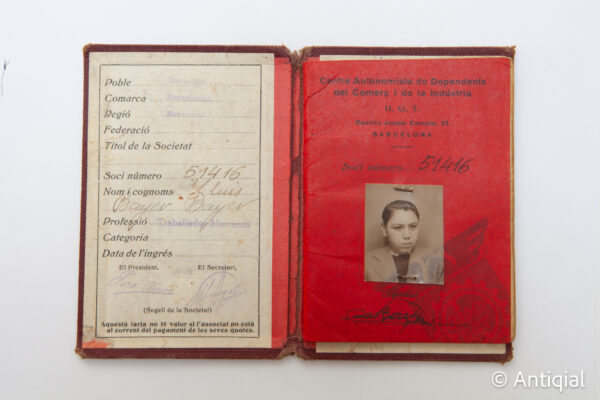 Poble Barcelona
Comarca Barcelonès
Regió Barcelona
Federació
Títol de la Societat
Soci número 51416
Nom i cognoms Lluis
Bayer Bayer
Professió Treballador Mercantil
Categoria
Data de l'ingrés
El President, El Secretari,
(Segell de la Societat)
Aquesta tarja no té valor si l'associat no està
al corrent del pagament de les seves quotes.
Centre Autonomista de Dependents
del Comerç i de la Indústria
U. G. T.
Rambla Jaume Compte,
BARCELONA
Soci número 51416
© Antiqial